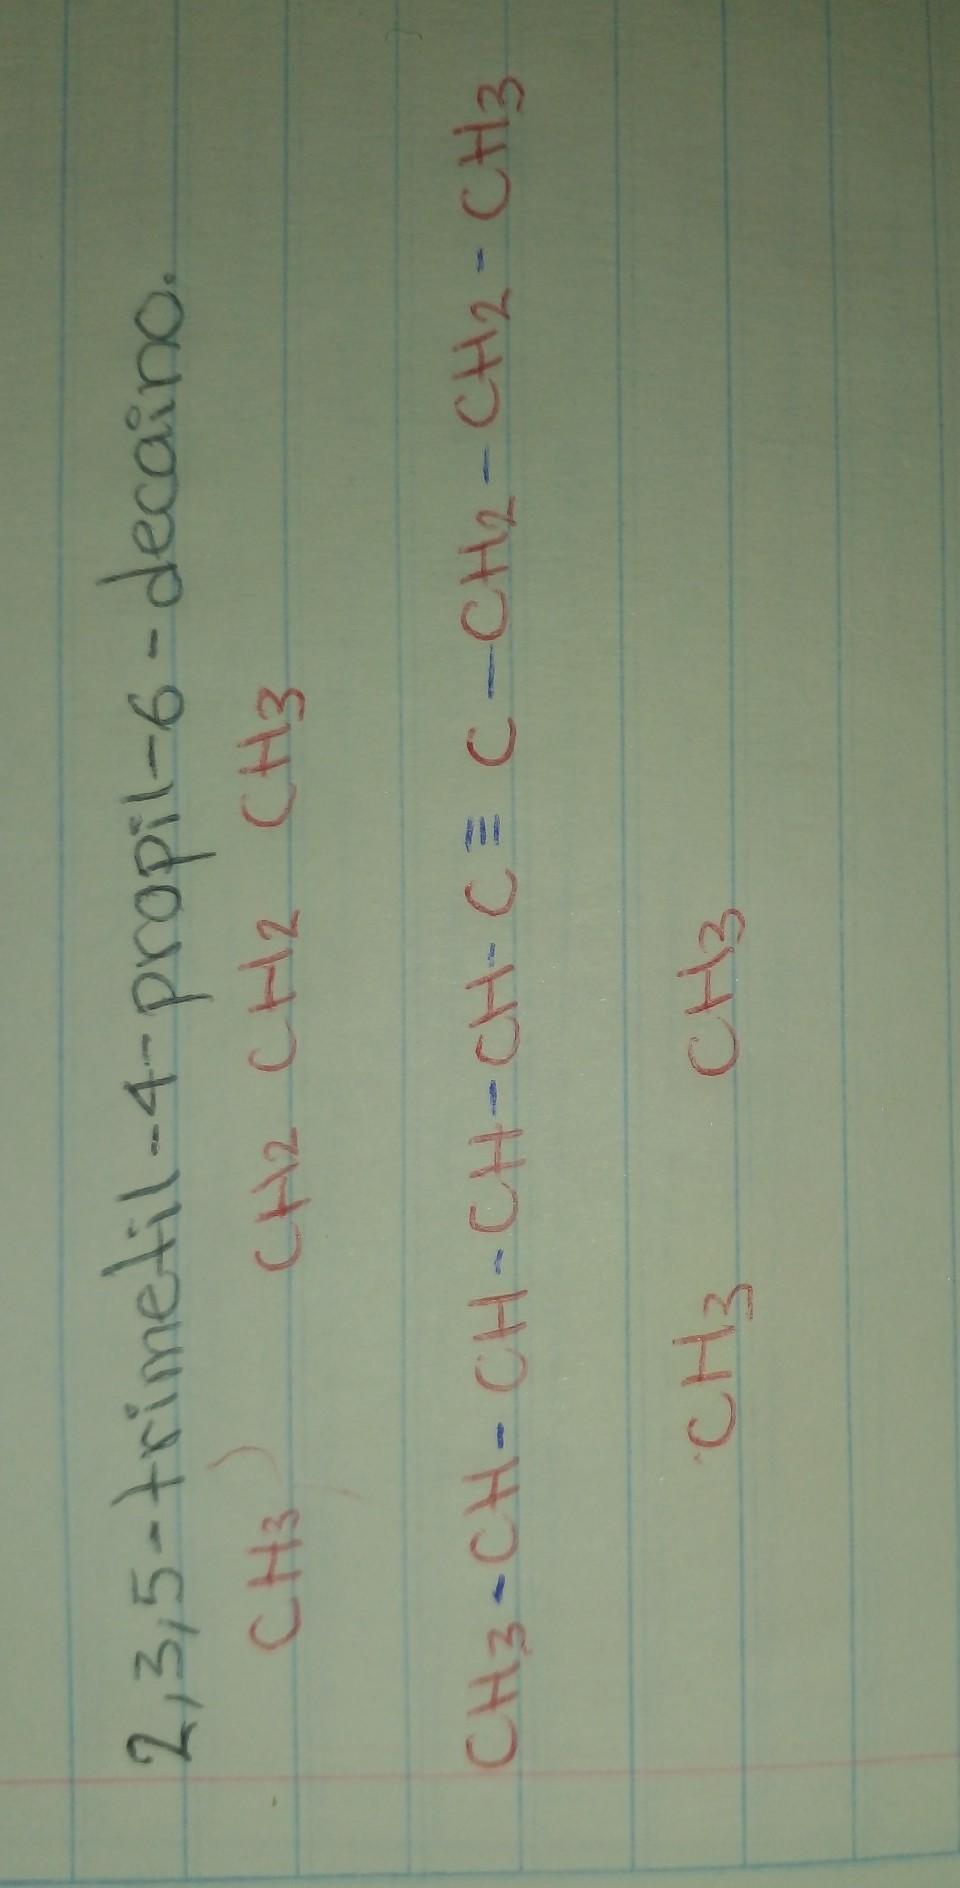 2,3,5-trimetil-4-propil-6-decaino.
CH3 CH2 CH2 CH3
CH3-CH-CH-CH-CH-C≡C-CH2-CH2-CH3
CH3 CH3